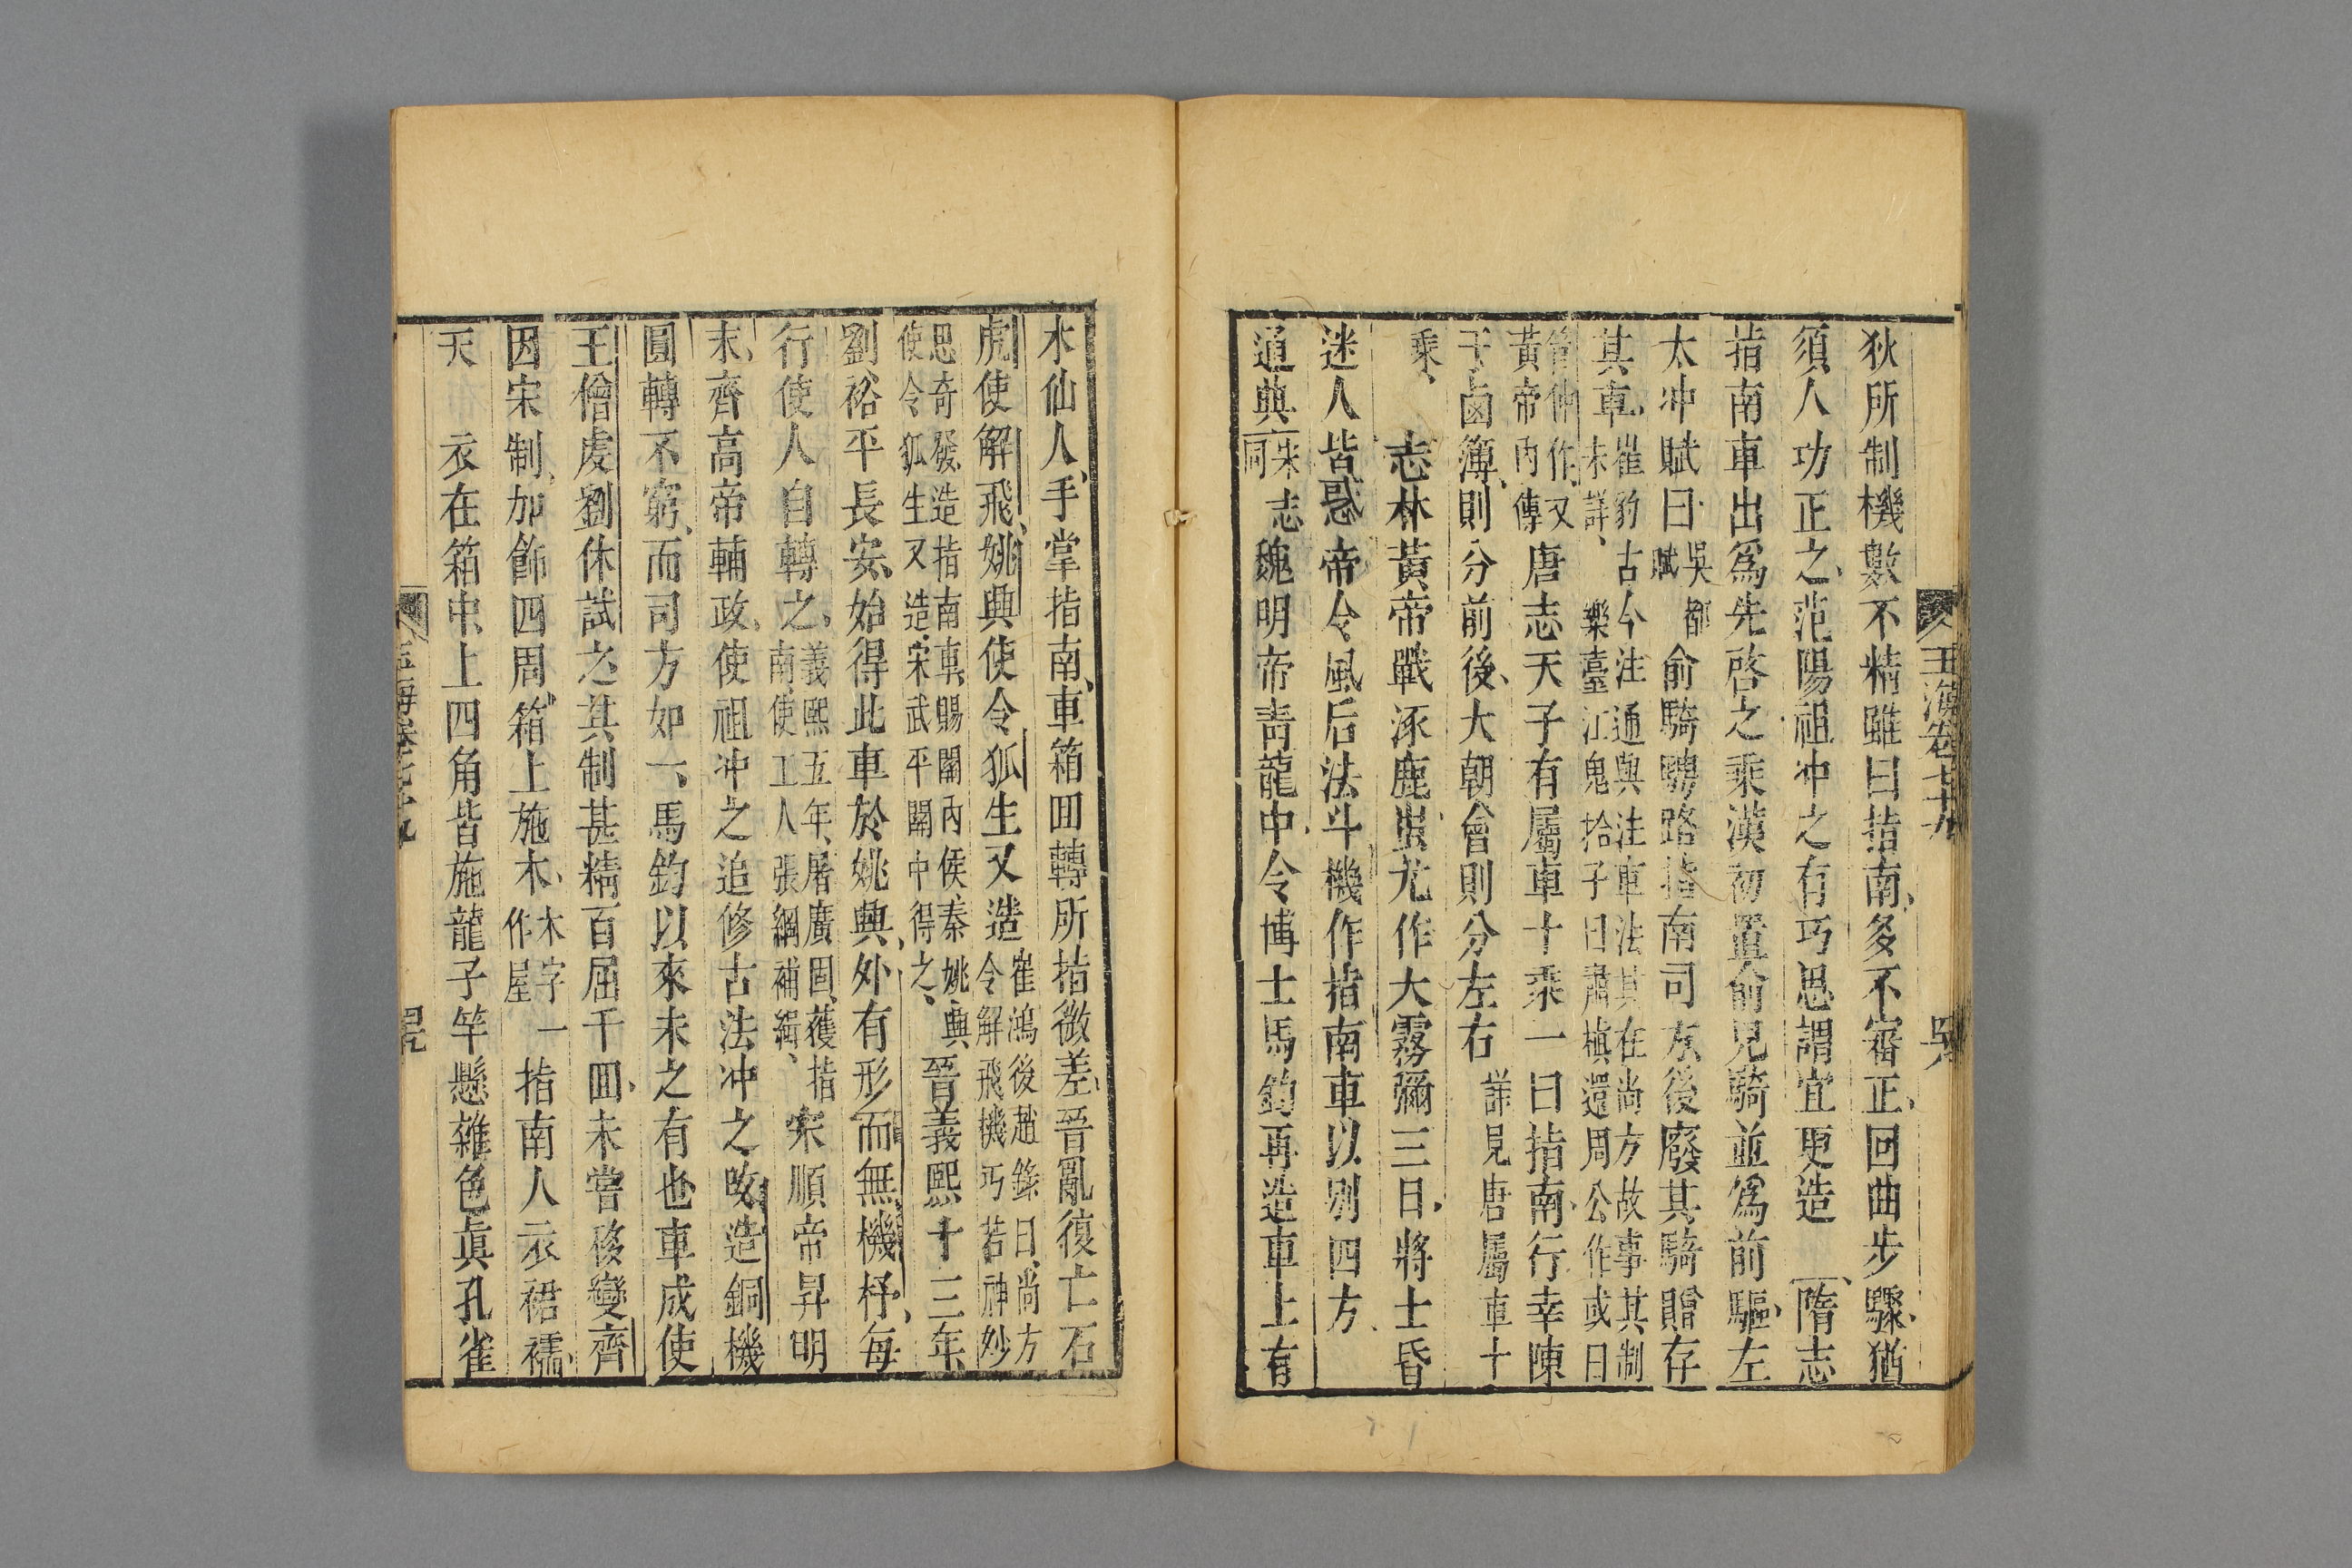 玉海卷七十九
狄所制機數不精雖曰指南多不審正回曲步驟猶
須人功正之范陽祖冲之有巧思謂宜更造 隋志
指南車出爲先啓之乘漢初置俞兒騎並爲前驅左
太冲賦曰吳都賦俞騎騁路指南司方後廢其騎贈存
其車崔豹古今注通與注車法其在尚方故事其制未詳樂臺江鬼拾子曰肅楨還周公作或曰
管仲作又黃帝內傳唐志天子有屬車十乘一曰指南行幸陳
于鹵簿則分前後大朝會則分左右詳見唐屬車十
乘 志林黃帝戰涿鹿蚩尤作大霧彌三日將士昏
迷人皆惑帝令風后法斗機作指南車以別四方
通典宋志同魏明帝靑龍中令博士馬鈞再造車上有
木仙人手掌指南車箱囬轉所指微差晉亂復亡石
虎使解飛姚興使令狐生又造崔鴻後趙錄曰尚方令解飛機巧若神妙
思奇發造指南車賜關內侯秦姚興使令狐生又造宋武平關中得之晉義熙十三年
劉裕平長安始得此車於姚興外有形而無機杼每
行使人自轉之義熙五年屠廣固獲指南使工人張綱補緝宋順帝昇明
末齊高帝輔政使祖冲之追修古法冲之改造銅機
圓轉不窮而司方如一馬鈞以來未之有也車成使
王僧虔劉休試之其制甚精百屈千囬未嘗移變齊
因宋制加飾四周箱上施木木字一作屋指南人衣裙襦
天 衣在箱中上四角皆施龍子竿懸雜色眞孔雀